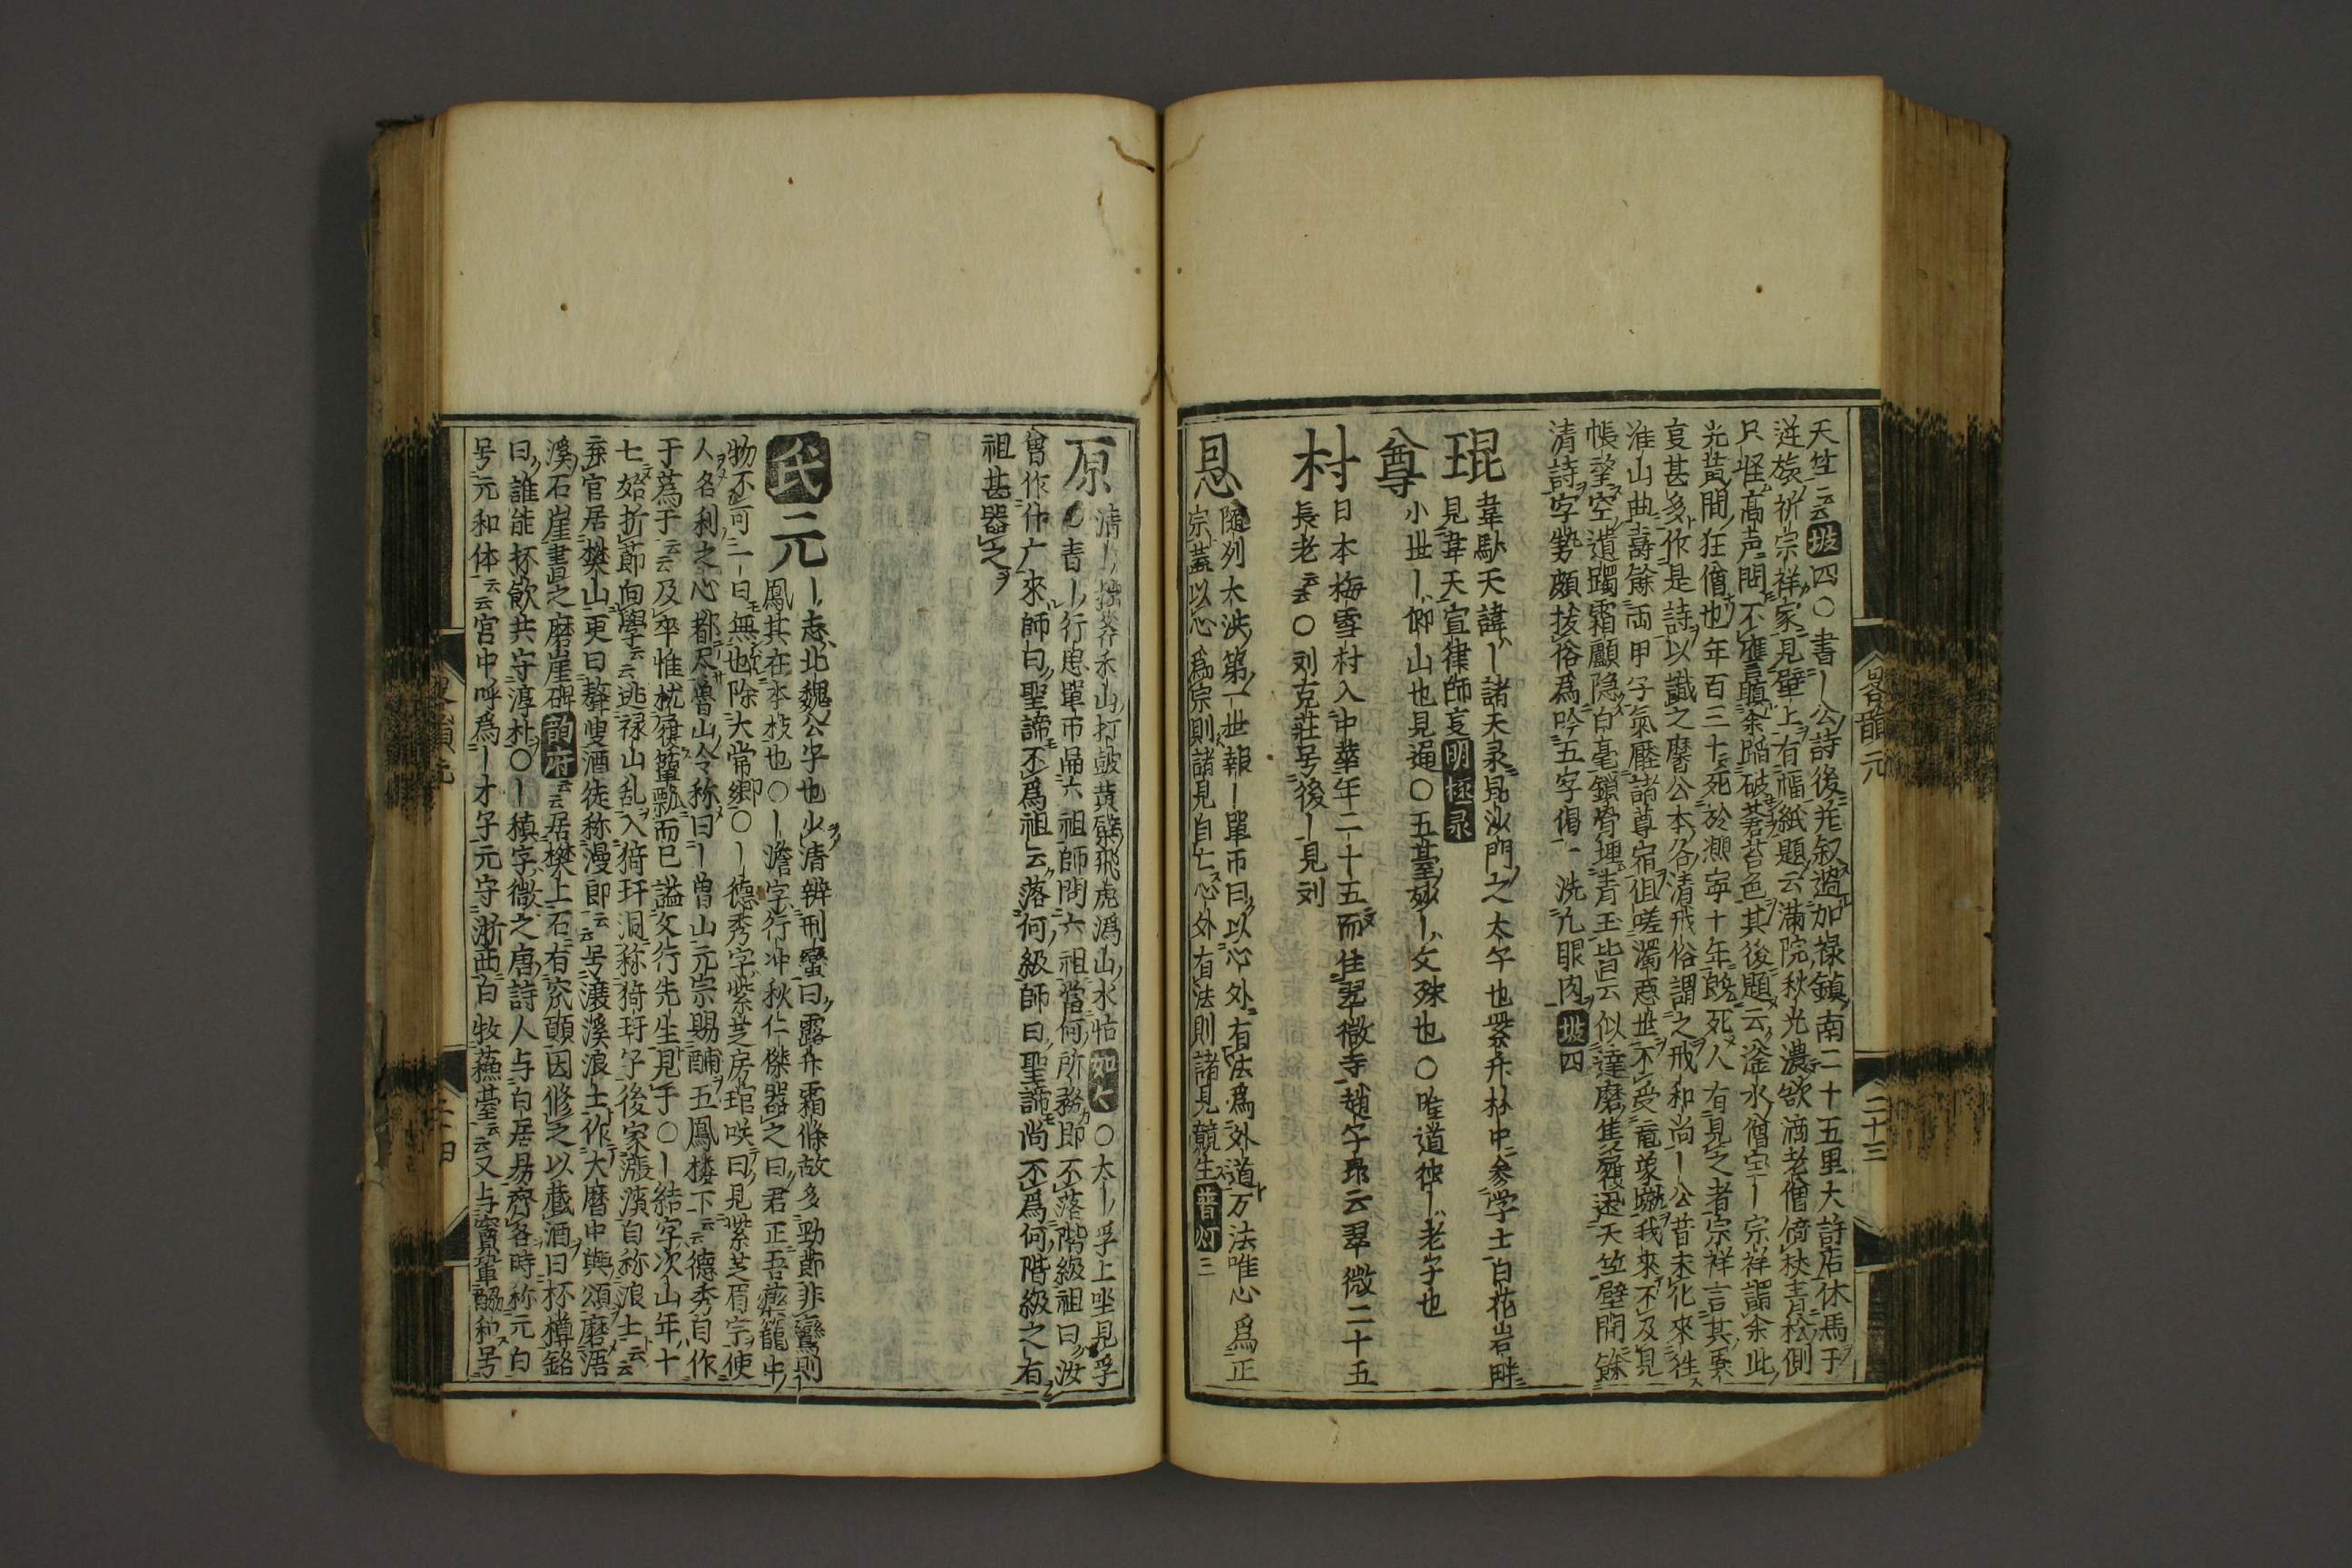 天竺云云坡四〇書〡公詩後并叙過加禄鎮南二十五里大許店休馬于
逆旅祈宗祥家見壁上有幅紙題云滿院秋光濃欲滴老僧倚杖青松側
只恠高声問不譍瞋余踏破蒼苔色其後題云滏水僧宝〡宗祥謂余此
光黄間狂僧也年百三十死於熈寧十年既死人有見之者宗祥言其異
亊甚多作是詩以識之暦公本名清戒俗謂之戒和尚〡公昔未化來徃
淮山曲壽餘両甲子氣壓諸尊宿但嗟濁惡世不受竜象蹴我來不及見
帳望空遺躅霜顱隐白毫鎖骨埋青玉皆云似達磨隻履還天竺壁間餘
清詩字勢頗拔俗為吟五字偈一洗凡眼肉坡四
琨
韋馱天諱〡諸天录見沙門之太子也紫竹林中参学士白花岩畔
見韋天宣律師亨明極录
尊
小世〡仰山也見逼〇五䑓妙〡文殊也〇唯道独〡老子也
村
日本梅雪村入中華年二十五而住翠微寺趙字昴云翠微二十五
長老云云〇刘克莊号後〡見刘
恩
隨列大洪第一世報〡單帀曰以心外有法為外道万法唯心為正
宗蓋以心為宗則諸見自亡心外有法則諸見競生普灯三
略韻元
二十三
原
清〡
禾山打皷黄檗飛虎潙山水牯如〇太〡孚上坐見孚
〇青〡行思單帀吊六祖師問六祖當何所務即不落階級祖曰汝
曽作什广來師曰聖諦不為祖云落何級師曰聖諦尚不為何階級之有
祖甚器之
氏
元
〡志北魏公字也少清辨刑蠻曰露竹霜條故多勁節非鸞則
鳳其在本枝也〇〡澹字行冲秋仁傑器之曰君正吾薬籠中
物不可一日無也除大常卿〇〡德秀字紫芝房琯咲曰見紫芝眉宇使
人名利之心都尽魯山令称曰〡曽山元宗賜酺五鳳楼下云德秀自作
于蒍于云云及卒惟枕履簞瓢而已謚文行先生見手〇〡結字次山年十
七始折節向學云云逃禄山乱入猗玗洞称猗玗子後家瀼濱自称浪士云云
弃官居樊山更曰聱叟酒徒称漫郎云云号瀼溪浪士作大暦中興頌磨浯
溪石崖書之磨崖碑韵府云云居樊上石有窊顚因修之以蔵酒曰杯樽銘
曰誰能杯飲共守淳朴〇〡稹字微之唐詩人与白居易齊名時称元白
号元和体云云宮中呼為〡才子元守浙西白牧蘓䑓云云又与竇鞏酬和号